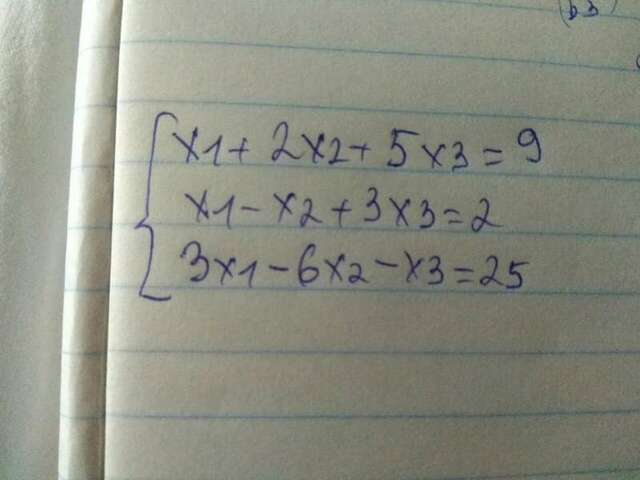 (b3)
x1+2x2+5x3=9
x1-x2+3x3=2
3x1-6x2-x3=25